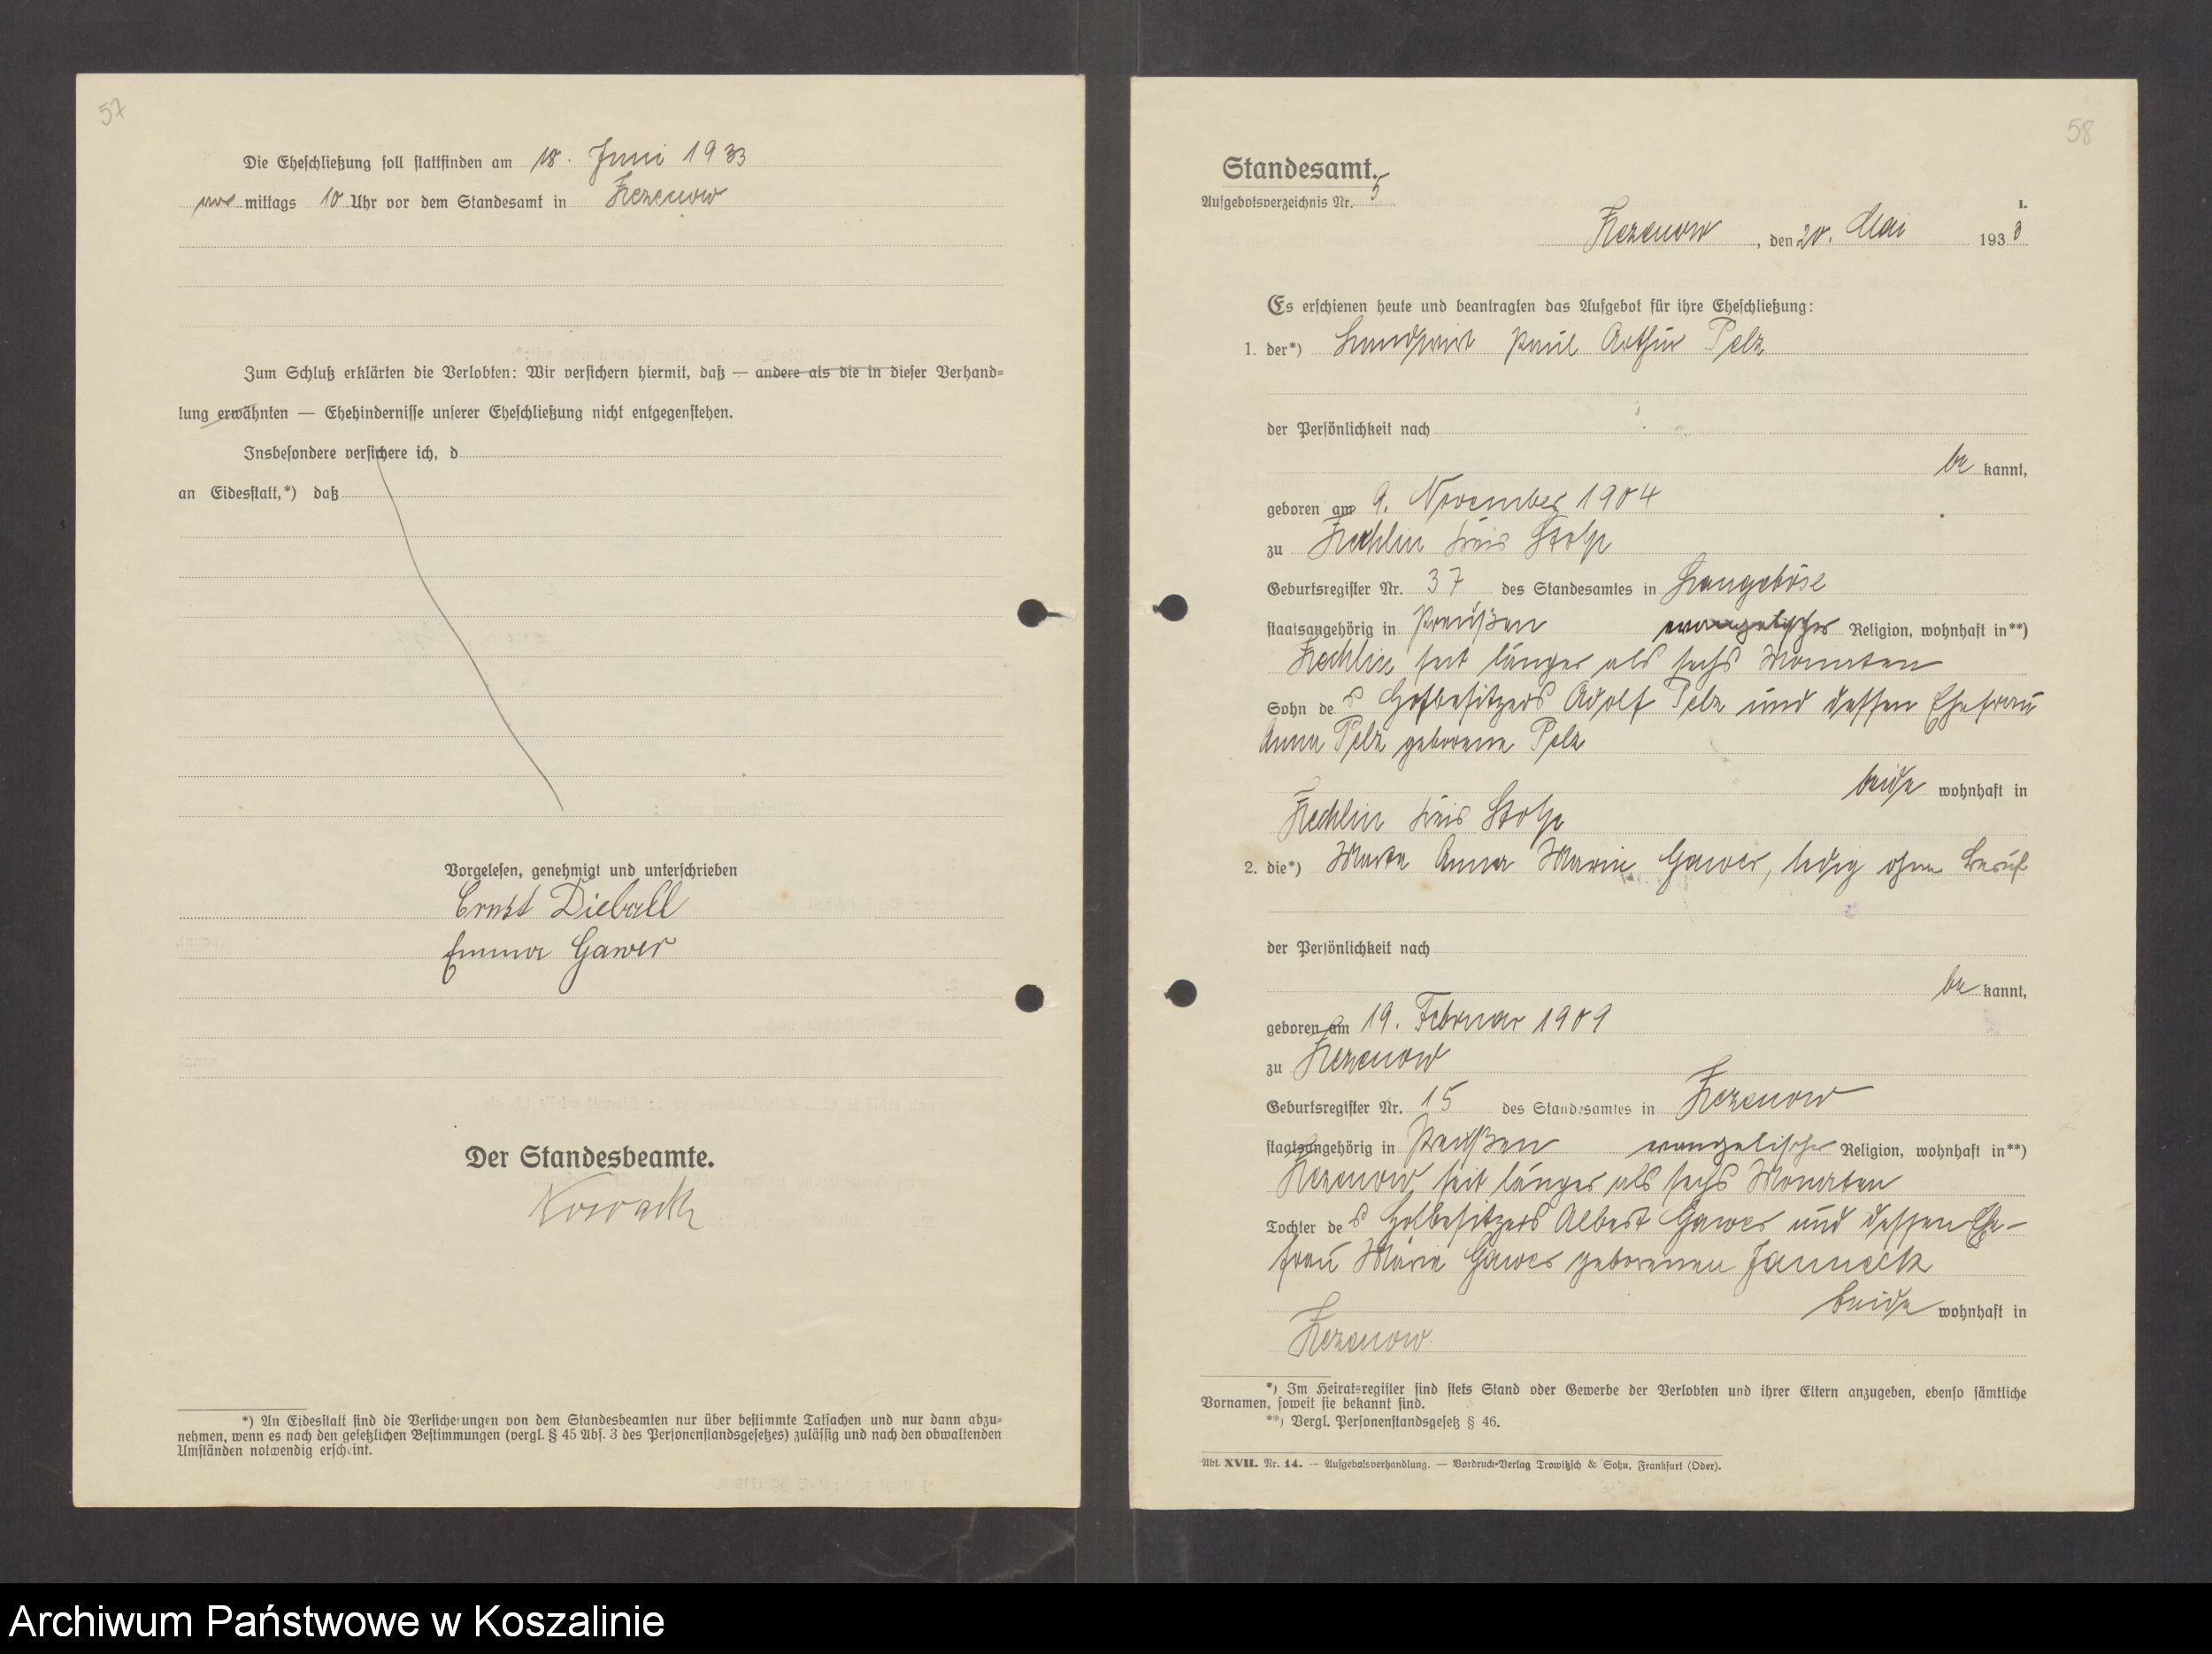 57
Die Eheschließung soll stattfinden am 18. Juni 1933
vor mittags 10 Uhr vor dem Standesamt in Zezenow
Zum Schluß erklärten die Verlobten: Wir versichern hiermit, daß — andere als die in dieser Verhand-
lung erwähnten — Ehehindernisse unserer Eheschließung nicht entgegenstehen.
Insbesondere versichere ich, d
an Eidesstatt,*) daß
Vorgelesen, genehmigt und unterschrieben
Ernst Dieball
Emma Gawer
Der Standesbeamte.
*) An Eidesstatt sind die Versicherungen von dem Standesbeamten nur über bestimmte Tatsachen und nur dann abzu-
nehmen, wenn es nach den gesetzlichen Bestimmungen (vergl. § 45 Abs. 3 des Personenstandsgesetzes) zulässig und nach den obwaltenden
Umständen notwendig erscheint.
58
Standesamt.
Aufgebotsverzeichnis Nr. 5
1.
Zezenow, den 20. Mai 1933
Es erschienen heute und beantragten das Aufgebot für ihre Eheschließung:
1. der*) Landwirt Paul Arthur Pelz
der Persönlichkeit nach
be kannt,
geboren am 9. November 1904
zu Zechlin Kreis Stolp
Geburtsregister Nr. 37 des Standesamtes in Langeböse
staatsangehörig in Preußen evangelischer Religion, wohnhaft in**)
Zechlin seit länger als sechs Monaten
Sohn des Hofbesitzers Adolf Pelz und dessen Ehefrau
Anna Pelz geborene Pelz
beide wohnhaft in
Zechlin Kreis Stolp
2. die*) Marta Anna Marie Gawer, ledig ohne Beruf
der Persönlichkeit nach
be kannt,
geboren am 19. Februar 1909
zu Zezenow
Geburtsregister Nr. 15 des Standesamtes in Zezenow
staatsangehörig in Preußen evangelischer Religion, wohnhaft in**)
Zezenow seit länger als sechs Monaten
Tochter des Hofbesitzers Albert Gawer und dessen Ehe-
frau Marie Gawer geborenen Janneck
beide wohnhaft in
Zezenow
*) Im Heiratsregister sind stets Stand oder Gewerbe der Verlobten und ihrer Eltern anzugeben, ebenso sämtliche
Vornamen, soweit sie bekannt sind.
**) Vergl. Personenstandsgesetz § 46.
Abt. XVII. Nr. 14. — Aufgebotsverhandlung. — Vordruck-Verlag Trowitzsch & Sohn, Frankfurt (Oder).
Archiwum Państwowe w Koszalinie